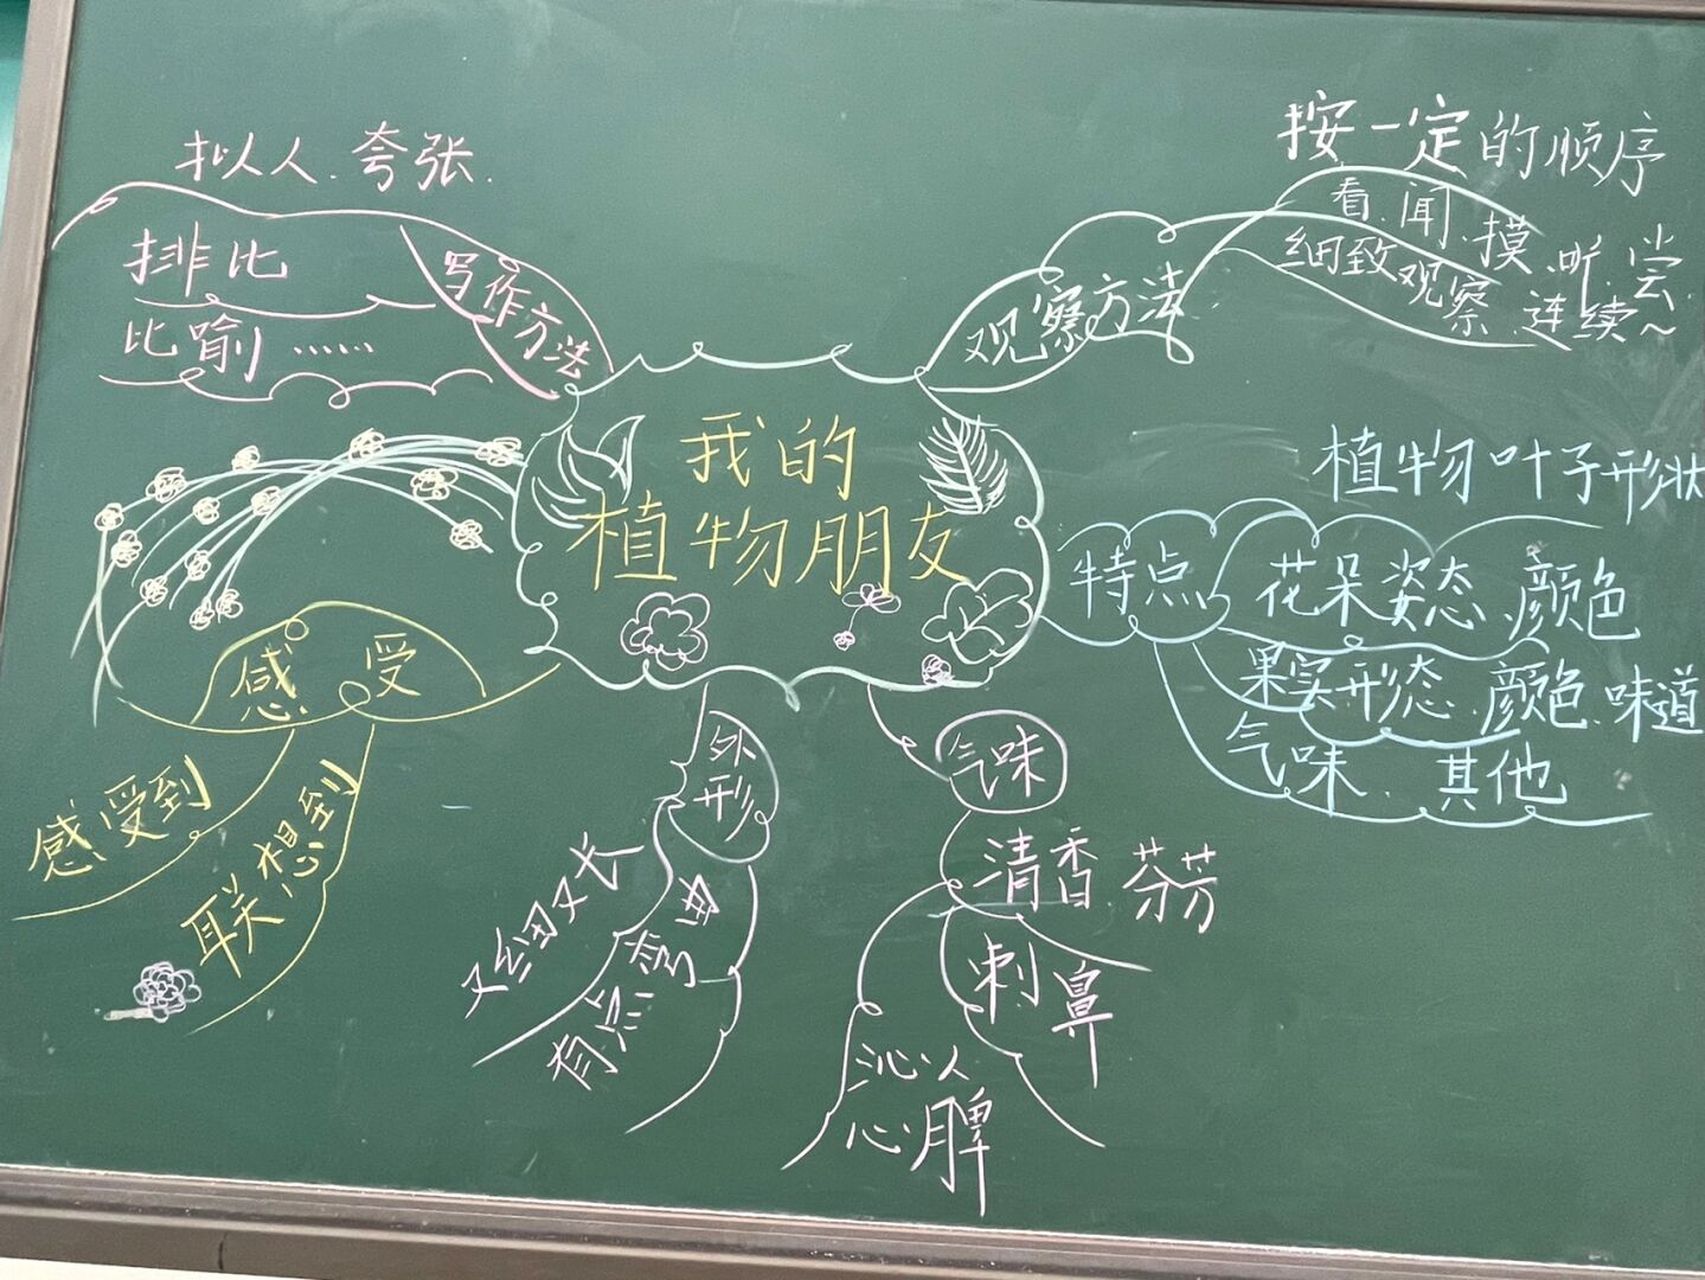 拟人.夸张.
排比
比喻……
写作方法
按一定的顺序
看.闻.摸.听.尝.
细致观察.连续~
观察方法
我的
植物朋友
植物叶子形状
特点
花朵姿态.颜色
果实形态.颜色.味道
气味.其他
感受
感受到
联想到
外形
又细又长
有点弯曲
气味
清香 芬芳
刺鼻
沁人
心脾